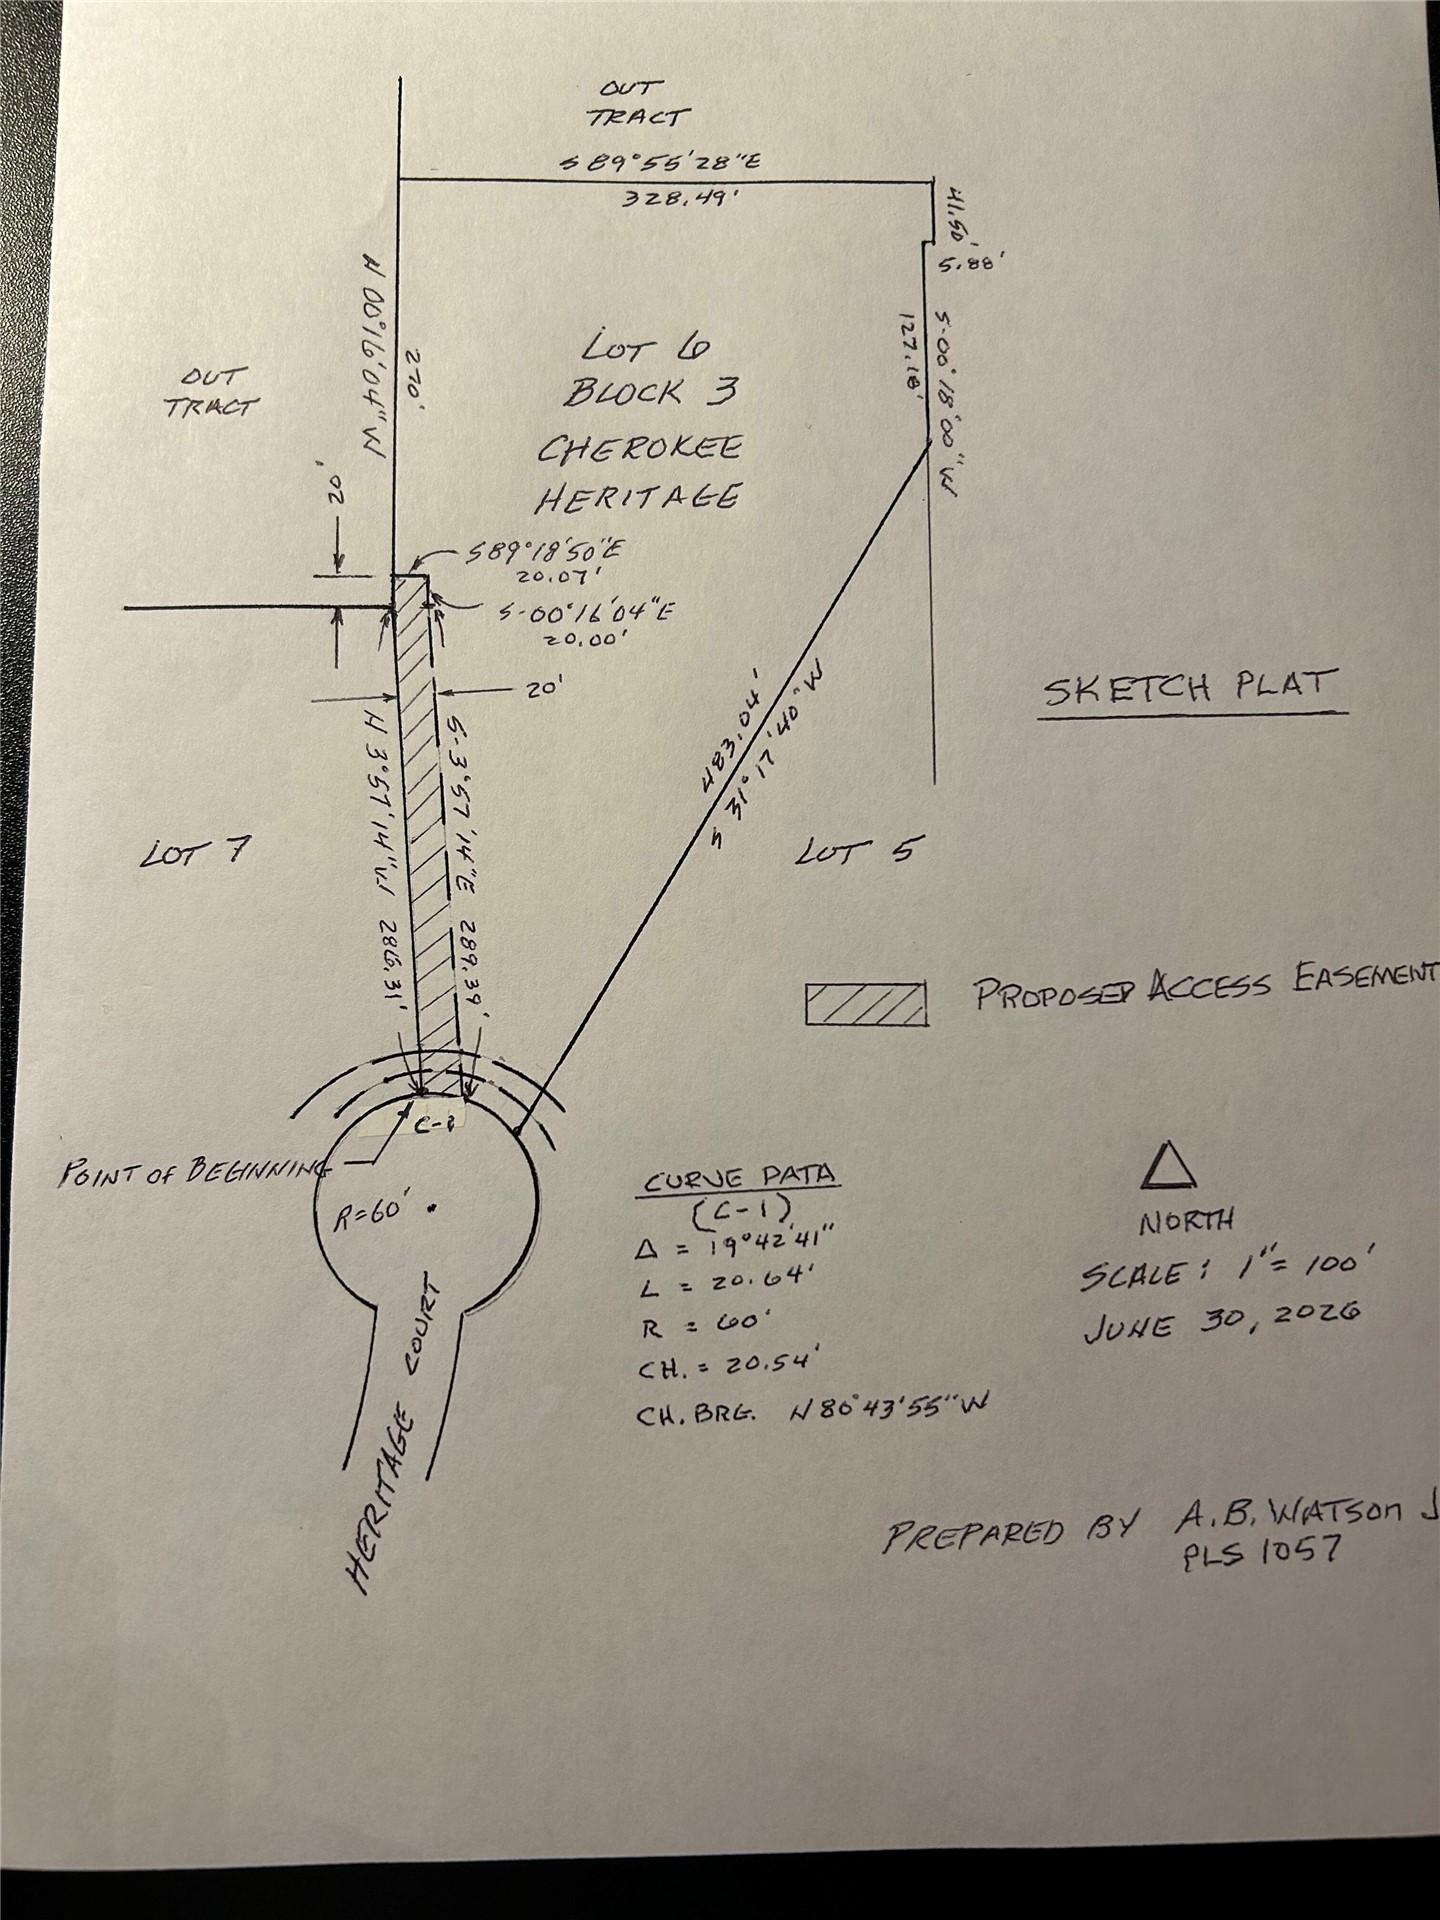 OUT
TRACT
S 89°55'28"E
328.49'
41.50'
5.88'
N 00°16'04" W
270'
S-00°18'00" W
127.18'
LOT 6
BLOCK 3
CHEROKEE
HERITAGE
OUT
TRACT
20'
S89°18'50"E
20.07'
S-00°16'04"E
20.00'
20'
SKETCH PLAT
483.04'
S 31°17'40" W
N 3°57'14" W 286.31'
S-3°57'14"E 289.39'
LOT 7
LOT 5
PROPOSED ACCESS EASEMENT
C-1
POINT OF BEGINNING
R=60'
HERITAGE COURT
CURVE DATA
(C-1)
Δ = 19°42'41"
L = 20.64'
R = 60'
CH. = 20.54'
CH. BRG. N 80°43'55" W
NORTH
SCALE: 1"= 100'
JUNE 30, 2026
PREPARED BY A.B. WATSON J
PLS 1057